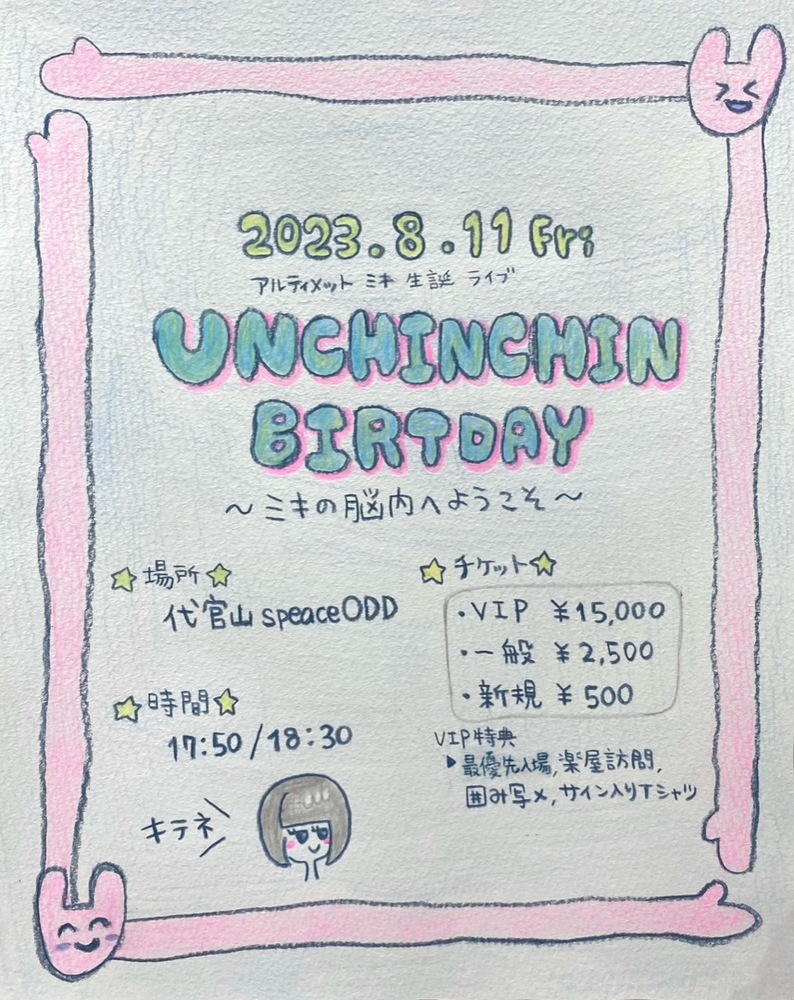 2023.8.11 Fri
アルティメット ミキ 生誕 ライブ
UNCHINCHIN
BIRTDAY
～ミキの脳内へようこそ～
☆場所☆
代官山 speaceODD
☆時間☆
17:50/18:30
キテネ
☆チケット☆
・VIP ¥15,000
・一般 ¥2,500
・新規 ¥500
VIP特典
▶最優先入場,楽屋訪問,
囲み写メ,サイン入りTシャツ